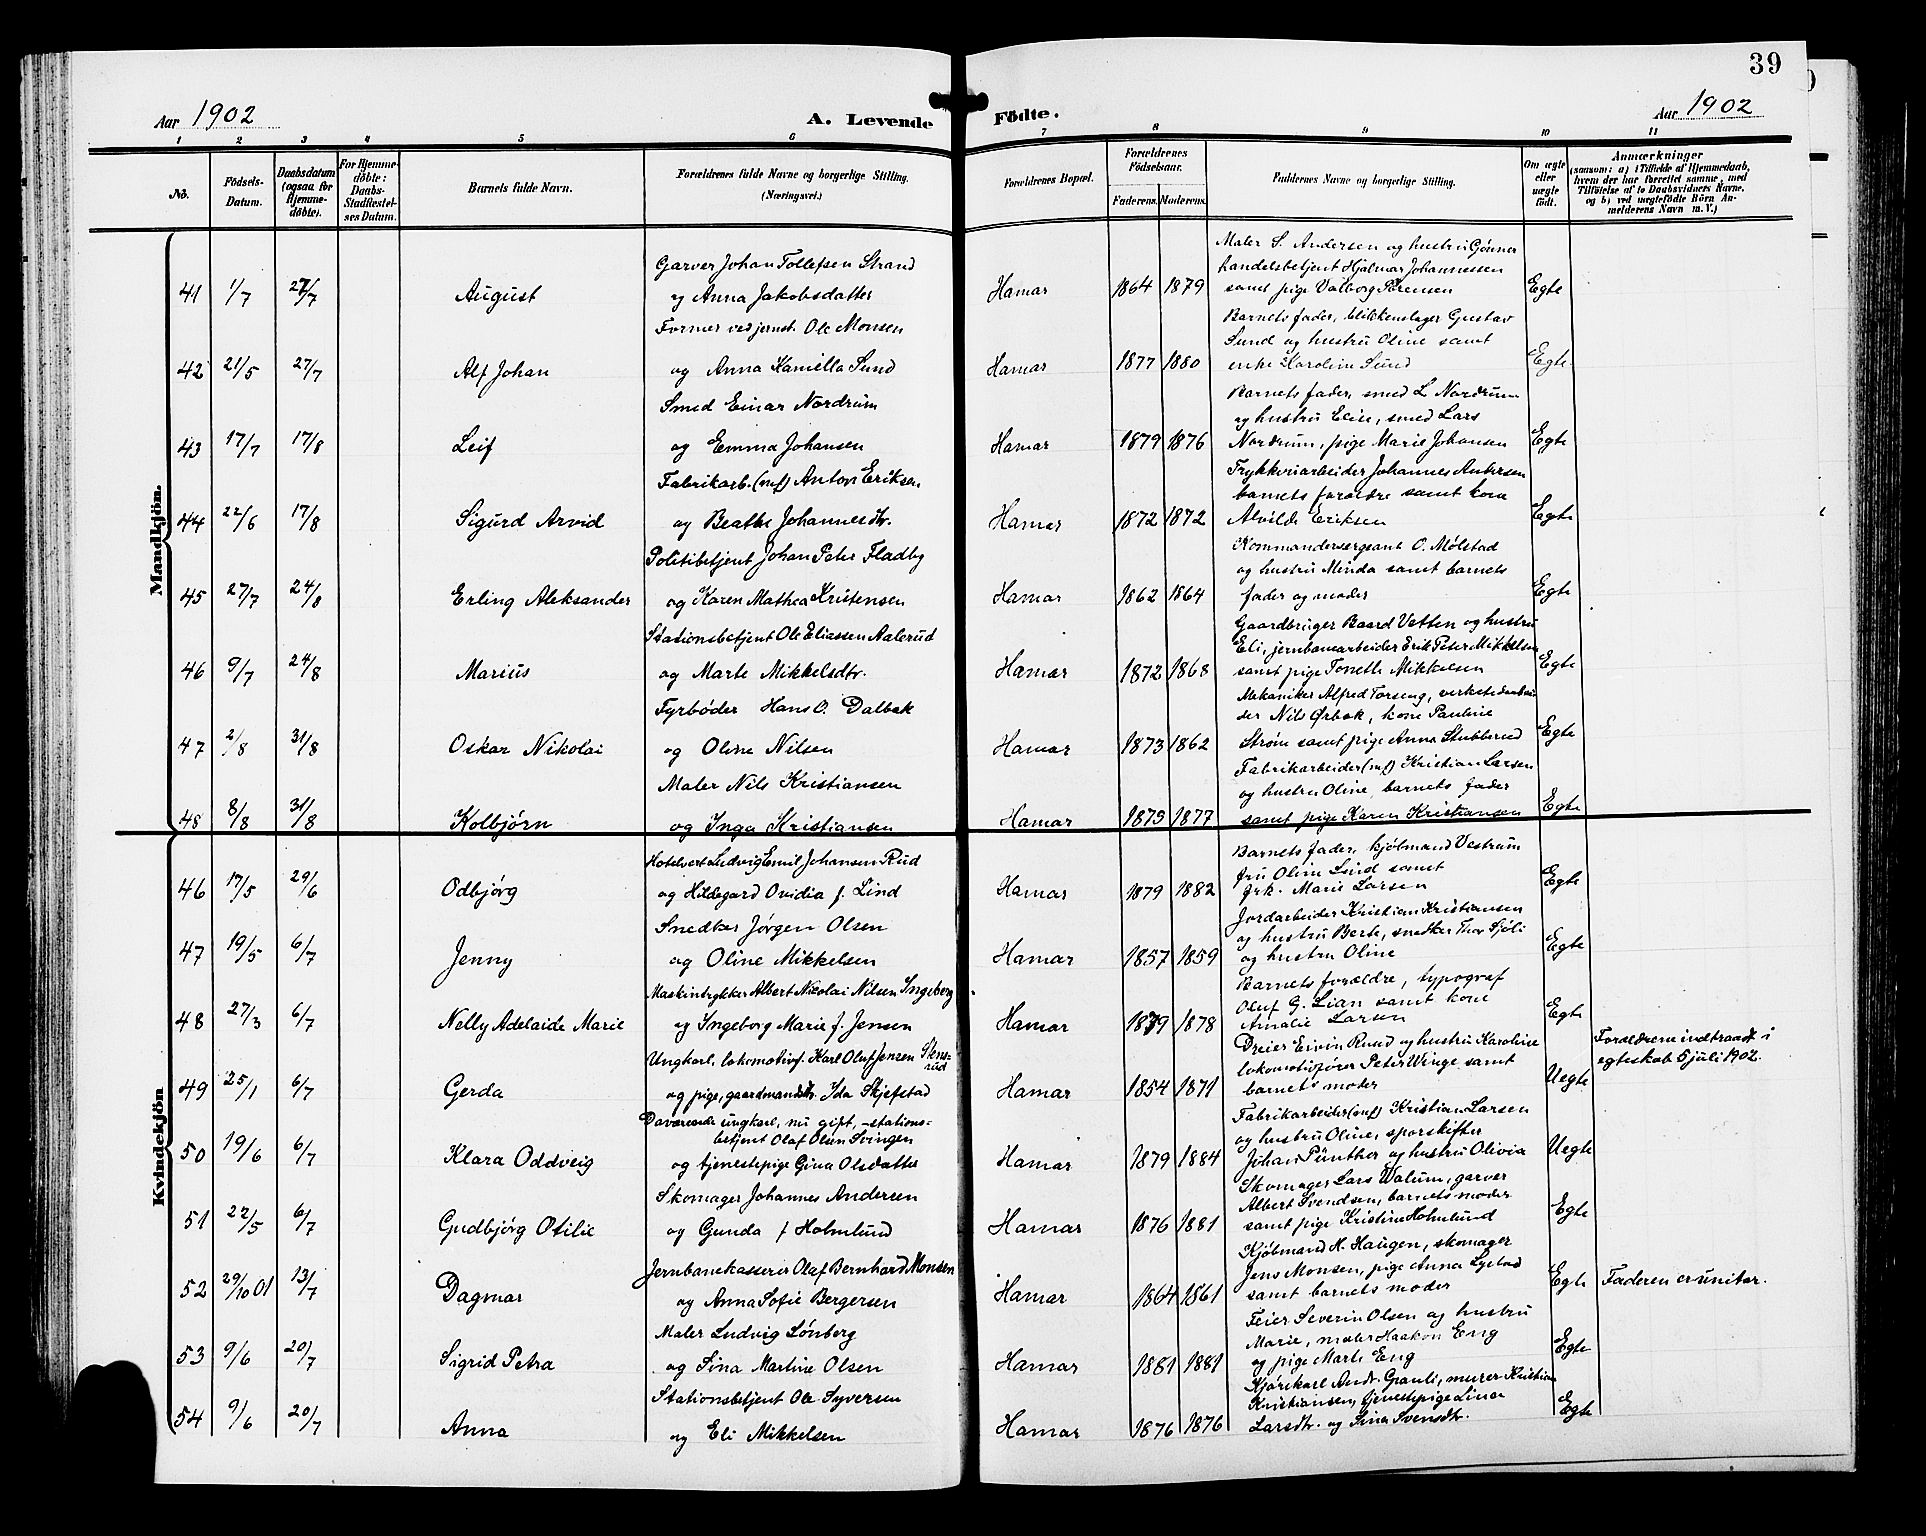 39
Aar 1902 A. Levende Födte. Aar 1902
1 2 3 4 5 6 7 8 9 10 11
No. Födsels-Datum. Daabsdatum (ogsaa for Hjemme-döbte). For Hjemme-döbte: Daabs-Stadfæstel-ses Datum. Barnets fulde Navn. Forældrenes fulde Navne og borgerlige Stilling. (Næringsvei.) Forældrenes Bopæl. Forældrenes Födselsaar. Faderens. Moderens. Faddernes Navne og borgerlige Stilling. Om ægte eller uægte födt. Anmærkninger (saasom: a) i Tilfælde af Hjemmedaab, hvem der har forrettet samme, med Tilföielse af to Daabsvidners Navne, og b) ved uægtefödte Börn An-melderens Navn m. V.)
Mandkjön.
Garver Johan Tollefsen Strand Maler S. Andersen og hustru Gønner
handelsbetjent Hjalmar Johannessen
41 1/7 27/7 August og Anna Jakobsdatter Hamar 1864 1879 samt pige Valborg Sørensen Egte
Former ved jernst. Ole Monsen Barnets fader, blikkenslager Gustav
Sund og hustru Oline samt
42 21/5 27/7 Alf Johan og Anna Kamilla Sund Hamar 1877 1880 enke Karoline Sund Egte
Smed Einar Nordrum Barnets fader, smed L Nordrum
og hustru Elise, smed Lars
43 17/7 17/8 Leif og Emma Johansen Hamar 1879 1876 Nordrum, pige Marie Johansen Egte
Fabrikarb. (mf) Anton Eriksen Trykkeriarbeider Johannes Andersen
barnets forældre samt kone
44 22/6 17/8 Sigurd Arvid og Beathe Johannesdtr. Hamar 1872 1872 Alvilde Eriksen Egte
Politibetjent Johan Peter Fladby Kommandersergeant O. Mølstad
og hustru Minda samt barnets
45 27/7 24/8 Erling Aleksander og Karen Mathea Kristensen Hamar 1862 1864 fader og moder Egte
Stationsbetjent Ole Eliassen Aalerud Gaardbruger Baard Vatten og hustru
Eli, jernbanearbeider Erik Peter Mikkelsen
46 9/7 24/8 Marius og Marte Mikkelsdtr. Hamar 1872 1868 samt pige Toneth Mikkelsen Egte
Fyrbøder Hans O. Dalbak Mekaniker Alfred Torseng, verkstedarbei
der Nils Ørbæk, kone Pauline
47 2/8 31/8 Oskar Nikolai og Oline Nilsen Hamar 1873 1862 Strøm samt pige Anna Stubberud Egte
Maler Nils Kristiansen Fabrikarbeider (mf) Kristian Larsen
og hustru Oline, barnets fader
48 8/8 31/8 Kolbjörn og Inga Kristiansen Hamar 1873 1877 samt pige Karen Kristiansen Egte
Kvindekjön
Hotelvert Ludvig Emil Johansen Rud Barnets fader, kjøbmand Vestrum
fru Oline Lind samt
46 17/5 29/6 Odbjörg og Hildegard Ovidia f. Lind Hamar 1879 1882 frk. Marie Larsen Egte
Snedker Jørgen Olsen Jordarbeider Kristian Kristiansen
og hustru Berte, snedker Thor Sjöli
47 19/5 6/7 Jenny og Oline Mikkelsen Hamar 1857 1859 og hustru Oline Egte
Maskintrykker Albert Nicolai Nilsen Ingeberg Barnets forældre, typograf
Oluf G. Lian samt kone
48 27/3 6/7 Nelly Adelaide Marie og Ingeborg Marie f. Jensen Hamar 1879 1878 Amalie Larsen Egte
Ungkarl, lokomotivf. Karl Oluf Jensen Stens-rud Dreier Eivin Ruud og hustru Karoline Forældrene indtraadt i
lokomotivfører Peter Winge samt egteskab 5 juli 1902.
49 25/1 6/7 Gerda og pige, gaardmandsdtr. Ida Skjefstad Hamar 1854 1871 barnets moder Uegte
Daværende ungkarl, nu gift, -stations- Fabrikarbeider (mf) Kristian Larsen
betjent Olaf Olsen Svingen og hustru Oline, sporskifter
50 19/6 6/7 Klara Oddveig og tjenestepige Gina Olsdatter Hamar 1879 1884 Johan Pünther og hustru Olivia Uegte
Skomager Johannes Andersen Skomager Lars Walum, garver
Albert Svendsen, barnets moder
51 22/5 6/7 Gudbjörg Otilie og Gunda f Holmlund Hamar 1876 1881 samt pige Kristine Holmlund Egte
Jernbanekasserer Olaf Bernhard Monsen Kjøbmand H. Haugen, skomager
Jens Monsen, pige Anna Lystad
52 29/10 01 13/7 Dagmar og Anna Sofie Bergersen Hamar 1864 1861 samt barnets moder Egte Faderen er unitar.
Maler Ludvig Lönberg Feier Severin Olsen og hustru
Marie, maler Haakon Eng
53 9/6 20/7 Sigrid Petra og Sina Martine Olsen Hamar 1881 1881 og pige Marte Eng Egte
Stationsbetjent Ole Syversen Kjørekarl Andr. Granli, murer Kristian
Kristiansen, tjenestepige Lina
54 9/6 20/7 Anna og Eli Mikkelsen Hamar 1876 1876 Larsdtr. og Sina Svensdtr. Egte